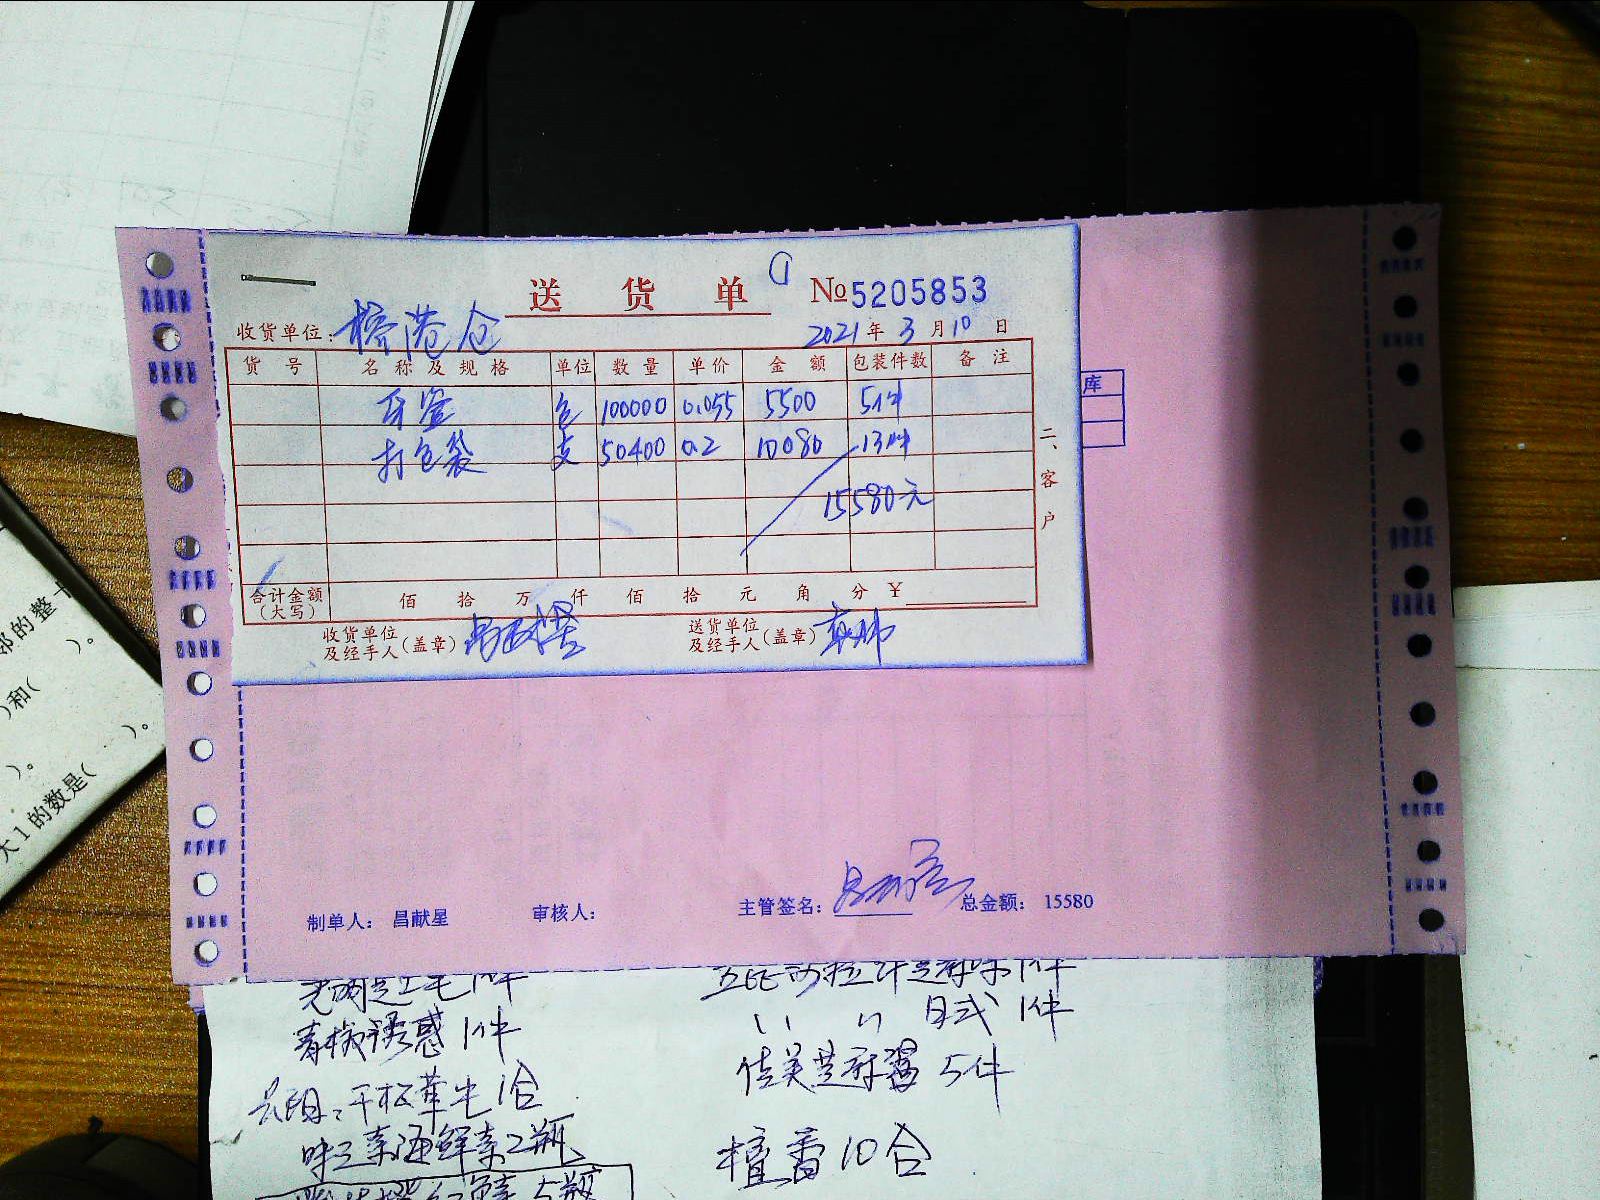 送 货 单 №5205853
收货单位: 榕港仓 2021年3月10日
货 号 名 称 及 规 格 单位 数 量 单价 金 额 包装件数 备 注
牙签 包 100000 0.055 5500 5件
打包袋 支 50400 0.2 10080 13件
15580元
二、客户
合计金额(大写) 佰 拾 万 仟 佰 拾 元 角 分 ¥
收货单位及经手人(盖章) 送货单位及经手人(盖章)
库
制单人: 昌献星 审核人: 主管签名: 总金额: 15580
部的整十
)。
)和(
)。
)。
大1的数是(
1件 1件
青梅诱惑 1件 日式 1件
佳美芝麻酱 5件
1合
味之素海鲜素2瓶
檀香10合
5瓶